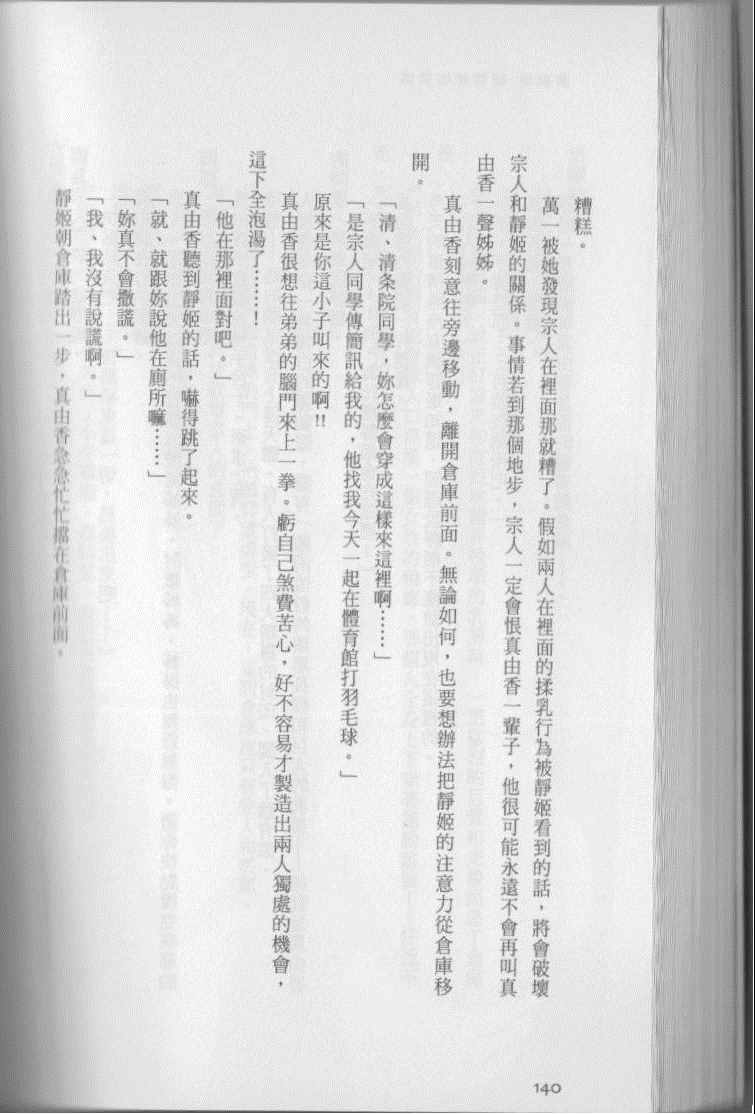 糟糕。
萬一被她發現宗人在裡面那就糟了。假如兩人在裡面的揉乳行為被靜姬看到的話，將會破壞
宗人和靜姬的關係。事情若到那個地步，宗人一定會恨真由香一輩子，他很可能永遠不會再叫真
由香一聲姊姊。
真由香刻意往旁邊移動，離開倉庫前面。無論如何，也要想辦法把靜姬的注意力從倉庫移
開。
「清、清条院同學，妳怎麼會穿成這樣來這裡啊⋯⋯」
「是宗人同學傳簡訊給我的，他找我今天一起在體育館打羽毛球。」
原來是你這小子叫來的啊!!
真由香很想往弟弟的腦門來上一拳。虧自己煞費苦心，好不容易才製造出兩人獨處的機會，
這下全泡湯了⋯⋯！
「他在那裡面對吧。」
真由香聽到靜姬的話，嚇得跳了起來。
「就、就跟妳說他在廁所嘛⋯⋯」
「妳真不會撒謊。」
「我、我沒有說謊啊。」
靜姬朝倉庫踏出一步，真由香急急忙忙擋在倉庫前面。
140